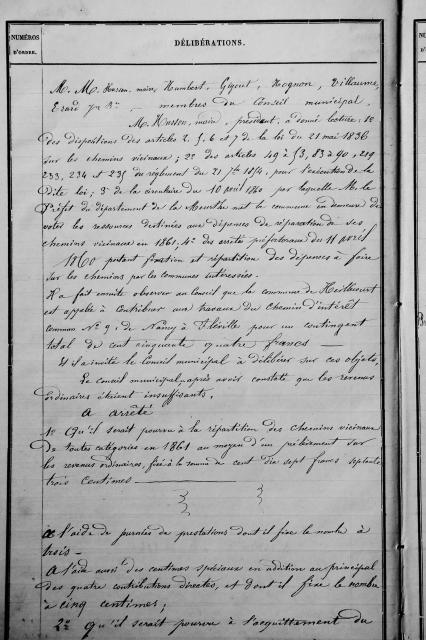 NUMÉROS
D'ORDRE.
DÉLIBÉRATIONS.
M. M. Husson, maire, Humbert, Gigout, Hognon, Villaume,
membres du Conseil municipal,
M. Husson, maire, président, a donné lecture: 1º
des dispositions des articles 2, §. 6 et 7 de la loi du 21 mai 1836
sur les chemins vicinaux; 2º des articles 49 à 53, 83 à 90, 219
233, 234 et 235 du règlement du 21 7bre 1854, pour l'exécution de la
dite loi; 3º de la circulaire du 10 avril 1860 par laquelle M. le
Préfet du département de la Meurthe met la commune en demeure de
voter les ressources destinées aux dépenses de réparation de ses
chemins vicinaux en 1861, 4º des arrêtés préfectoraux du 11 avril
1860 portant fixation et répartition des dépenses à faire
sur les chemins par les communes intéressées.
Il a fait ensuite observer au Conseil que la commune de Heillecourt
est appelée à contribuer aux travaux du chemin d'intérêt
commun Nº 9, de Nancy à Fléville pour un contingent
total de cent cinquante quatre francs —
Et il a invité le Conseil municipal à délibérer sur ces objets,
Le conseil municipal, après avoir constaté que les revenus
ordinaires étaient insuffisants,
a arrêté
1º Qu'il serait pourvu à la répartition des chemins vicinaux
de toutes catégories en 1861 au moyen d'un prélèvement sur
les revenus ordinaires, fixé à la somme de cent dix sept francs septante
trois centimes —
a l'aide de journées de prestations dont il fixe le nombre à
trois —
A l'aide aussi des centimes spéciaux en addition au principal
des quatre contributions directes, et dont il fixe le nombre
à cinq centimes;
2º qu'il serait pourvu à l'acquittement du